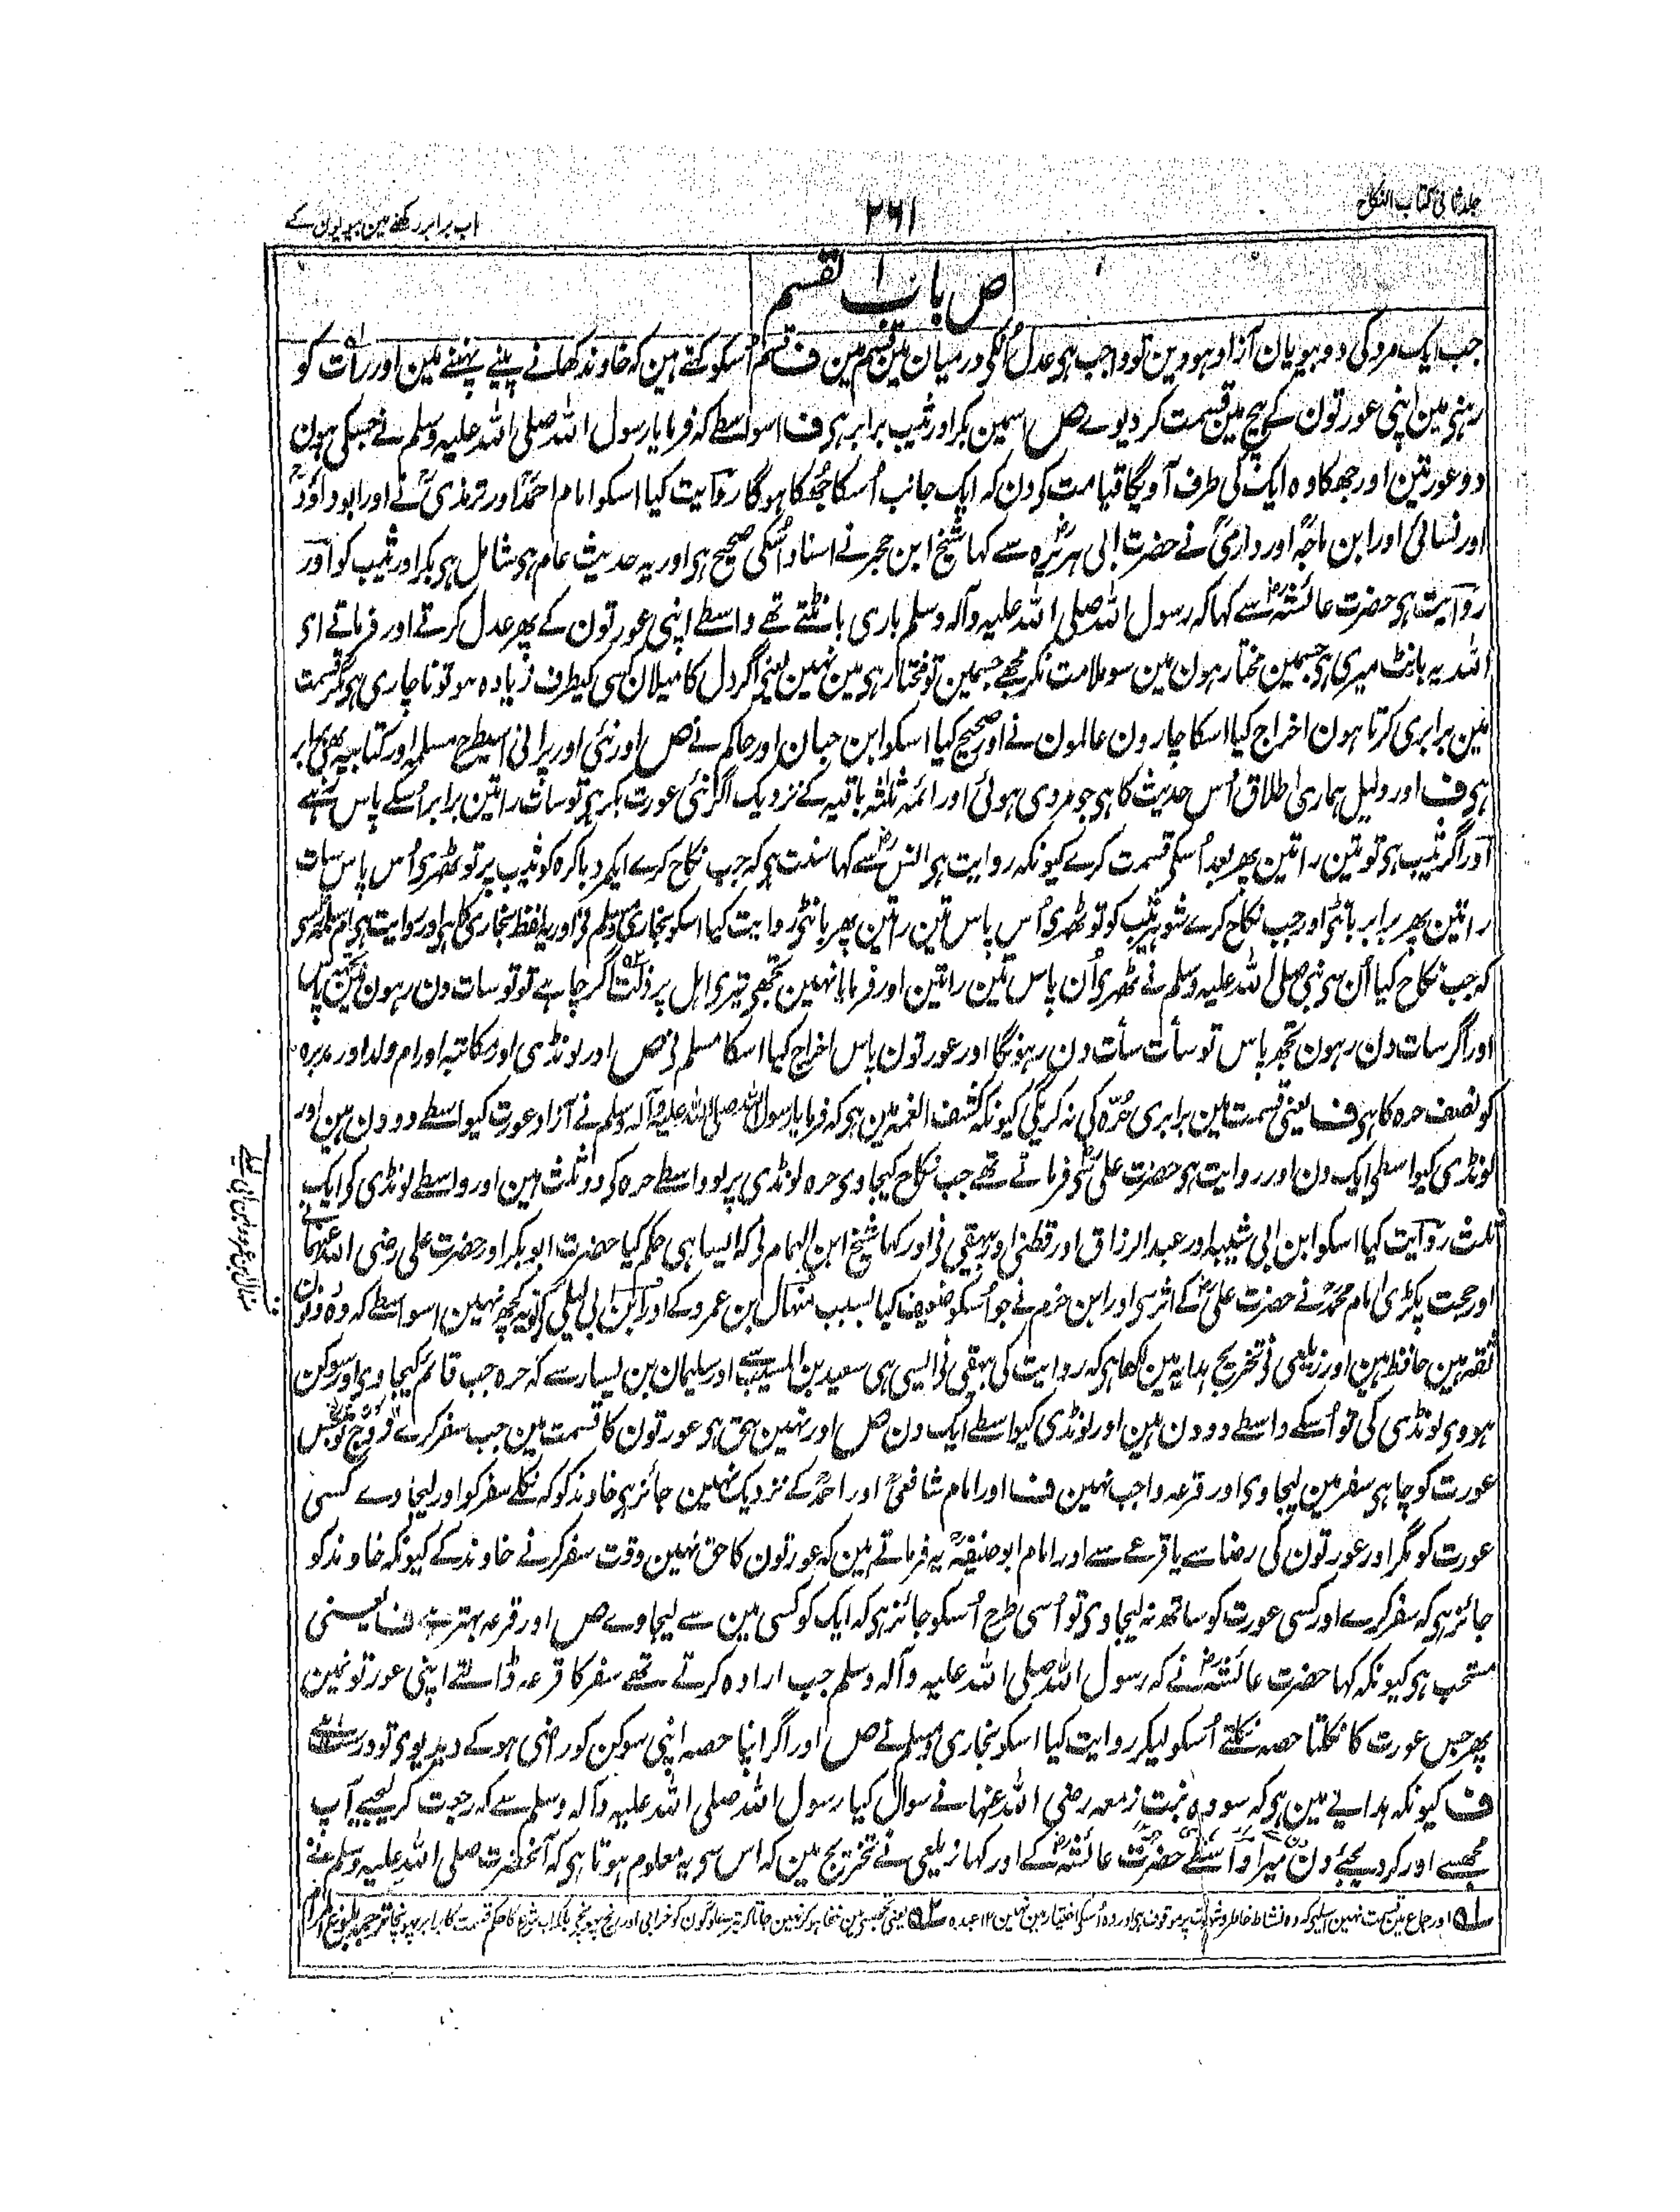 جلد ثانی کتاب النکاح
۲۶۱
باب برابر رکھنے میں بیویوں کے
ص باب القسم
جب ایک مرد کی دو بیویان آزاد ہووین تو واجب ہی عدل اُنکی درمیان مین قسم مین ف قسم اُسکو کہتے ہین کہ خاوند کھانے پینے پہننے مین اور رات کو
رہنی مین اپنی عورتون کے بیچ مین قسمت کر دیوے ص اسمین بکر اور ثیب برابر ہی ف اسواسطے کہ فرمایا رسول اللہ صلی اللہ علیہ وسلم نے جسکی ہون
دو عورتین اور جھکا وہ ایک کی طرف آویگا قیامت کو دن کہ ایک جانب اُسکا جُھکا ہوگا روایت کیا اسکو امام احمدؒ اور ترمذیؒ نے اور ابوداؤدؒ
اور نسائی اور ابن ماجہؒ اور دارمیؒ نے حضرت ابی ہریرہؓ سے کہا شیخ ابن حجر نے اسناد اُسکی صحیح ہی اور یہ حدیث عام ہی شامل ہی بکر اور ثیب کو اور
روایت ہی حضرت عائشہؓ سے کہا کہ رسول اللہ صلی اللہ علیہ وآلہ وسلم باری بانٹتے تھے واسطے اپنی عورتون کے پھر عدل کرتے اور فرماتے ای
اللہ یہ بانٹ میری ہی جسمین مختار ہون مین سو ملامت نکر مجھے جسمین تو مختار ہی مین نہین یعنی اگر دل کا میلان کسی کیطرف زیادہ ہو تو ناچاری ہی مگر قسمت
مین برابری کرتا ہون اخراج کیا اسکا چارون عالمون نے اور صحیح کہا اسکو ابن حبان اور حاکم نے ص اور نئی اور پرانی اسیطرح مسلمہ اور کتابیہ بھی برابر
ہی ف اور دلیل ہماری اطلاق اُس حدیث کا ہی جو مروی ہوئی اور ائمہ ثلثہ باقیہ کے نزدیک اگر نئی عورت بکر ہی تو سات راتین برابر اُسکے پاس رہے
اور اگر ثیب ہی تو تین راتین پھر بعد اُسکی قسمت کرے کیونکہ روایت ہی انسؓ سے کہا سنت ہی کہ جب نکاح کرے ایکمرد باکرہ کو ثیب پر تو ٹھہری اُس پاس سات
راتین پھر برابر بانٹی اور جب نکاح کرے شوہر ثیب کو تو ٹھہری اُس پاس تین راتین پھر بانٹی روایت کیا اسکو بخاری مسلم نی اور یہ لفظ بخاری کا ہی اور روایت ہی ام سلمہؓ سی
کہ جب نکاح کیا اُن سی نبی صلی اللہ علیہ وسلم نے ٹھہری اُن پاس تین راتین اور فرمایا نہین تجھی تیری اہل پر ذلت اگر چاہے تو تو سات دن رہون مین تجھ پاس
اور اگر سات دن رہون تجھ پاس تو سات سات دن رہونگا اور عورتون پاس اخراج کیا اسکا مسلم نی ص اور لونڈی اور مکاتبہ اور ام ولد اور مدبرہ
کو نصف حرہ کا ہی ف یعنی قسمت مین برابری حُرّہ کی نہ کریگی کیونکہ کشف الغمہ مین ہی کہ فرمایا رسول اللہ صلی اللہ علیہ وآلہ وسلم نے آزاد عورت کیواسطے دو دن ہین اور
لونڈی کیواسطی ایک دن اور روایت ہی حضرت علیؓ سی فرماتے تھے جب نکاح کیجاوی حرہ لونڈی پر تو واسطے حرہ کو دو ثلث ہین اور واسطے لونڈی کو ایک
ثلث روایت کیا اسکو ابن ابی شیبہ اور عبدالرزاق اور دارقطنی اور بیہقی نی اور کہا شیخ ابن الہمام نی کہ ایسا ہی حکم کیا حضرت ابوبکر اور حضرت علی رضی اللہ عنہما نے
اور حجت پکڑی امام محمدؒ نے حضرت علیؓ کے اثر سی اور ابن حزم نے جو اُسکو ضعیف کیا بسبب منہال ابن عمرو کے اور ابن ابی لیلی کی تو یہ کچھ نہین اسواسطے کہ وہ دونون
ثقہ ہین حافظ ہین اور زیلعی نی تخریج ہدایہ مین لکھا ہی کہ روایت کی بیہقی نی ایسی ہی سعید بن المسیب سے اور سلیمان بن یسار سے کہ حرہ جب قائم کیجاوی اور سوکن
ہووی لونڈی کی تو اُسکے واسطے دو دن ہین اور لونڈی کیواسطے ایک دن ص اور نہین حق ہی عورتون کا قسمت مین جب سفر کرے زوج تو جس
عورت کو چاہی سفر مین لیجاوی اور قرعہ واجب نہین ف اور امام شافعیؒ اور احمدؒ کے نزدیک نہین جائز ہی خاوند کو کہ نکلے سفر کو اور لیجاوے کسی
عورت کو مگر اور عورتون کی رضا سے یا قرعے سے اور امام ابوحنیفہؒ یہ فرماتے ہین کہ عورتون کا حق نہین وقت سفر کرنے خاوند کے کیونکہ خاوند کو
جائز ہی کہ سفر کرے اور کسی عورت کو ساتھ نہ لیجاوی تو اُسی طرح اُسکو جائز ہی کہ ایک کو کسی مین سے لیجاوے ص اور قرعہ بہتر ہے ف یعنی
مستحب ہی کیونکہ کہا حضرت عائشہؓ نے کہ رسول اللہ صلی اللہ علیہ وآلہ وسلم جب ارادہ کرتے تھے سفر کا قرعہ ڈالتے اپنی عورتونمین
پھر جس عورت کا نکلتا حصہ نکلتے اُسکو لیکر روایت کیا اسکو بخاری مسلم نے ص اور اگر اپنا حصہ اپنی سوکن کو راضی ہوکے دیدیوی تو درست ہے
ف کیونکہ ہدایے مین ہی کہ سودہ بنت زمعہ رضی اللہ عنہا نے سوال کیا رسول اللہ صلی اللہ علیہ وآلہ وسلم سے کہ رجعت کر لیجیے آپ
مجھسے اور کر دیجیے دن میرا واسطے حضرت عائشہؓ کے اور کہا زیلعی نے تخریج مین کہ اس سی یہ معلوم ہوتا ہی کہ آنحضرت صلی اللہ علیہ وسلم نے
۱ اور جماع مین قسمت نہین اسلیے کہ وہ نشاط خاطر و شہوت پر موقوف ہی اور وہ اُسکو اختیار مین نہین ۱۲ عمدہ ۲ یعنی تجھسی مین خفا ہو کر نہین جاتا کہ تیرے لوگون کو خرابی اور رنج پہونچی بلکہ اب شرع کا حکم قسمت کا برابر پہونچا
منہال بن عمرو و ابن ابی لیلے